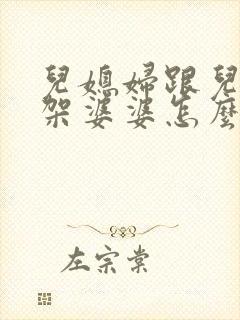 兒媳婦跟兒
架婆婆怎麼
左宗棠